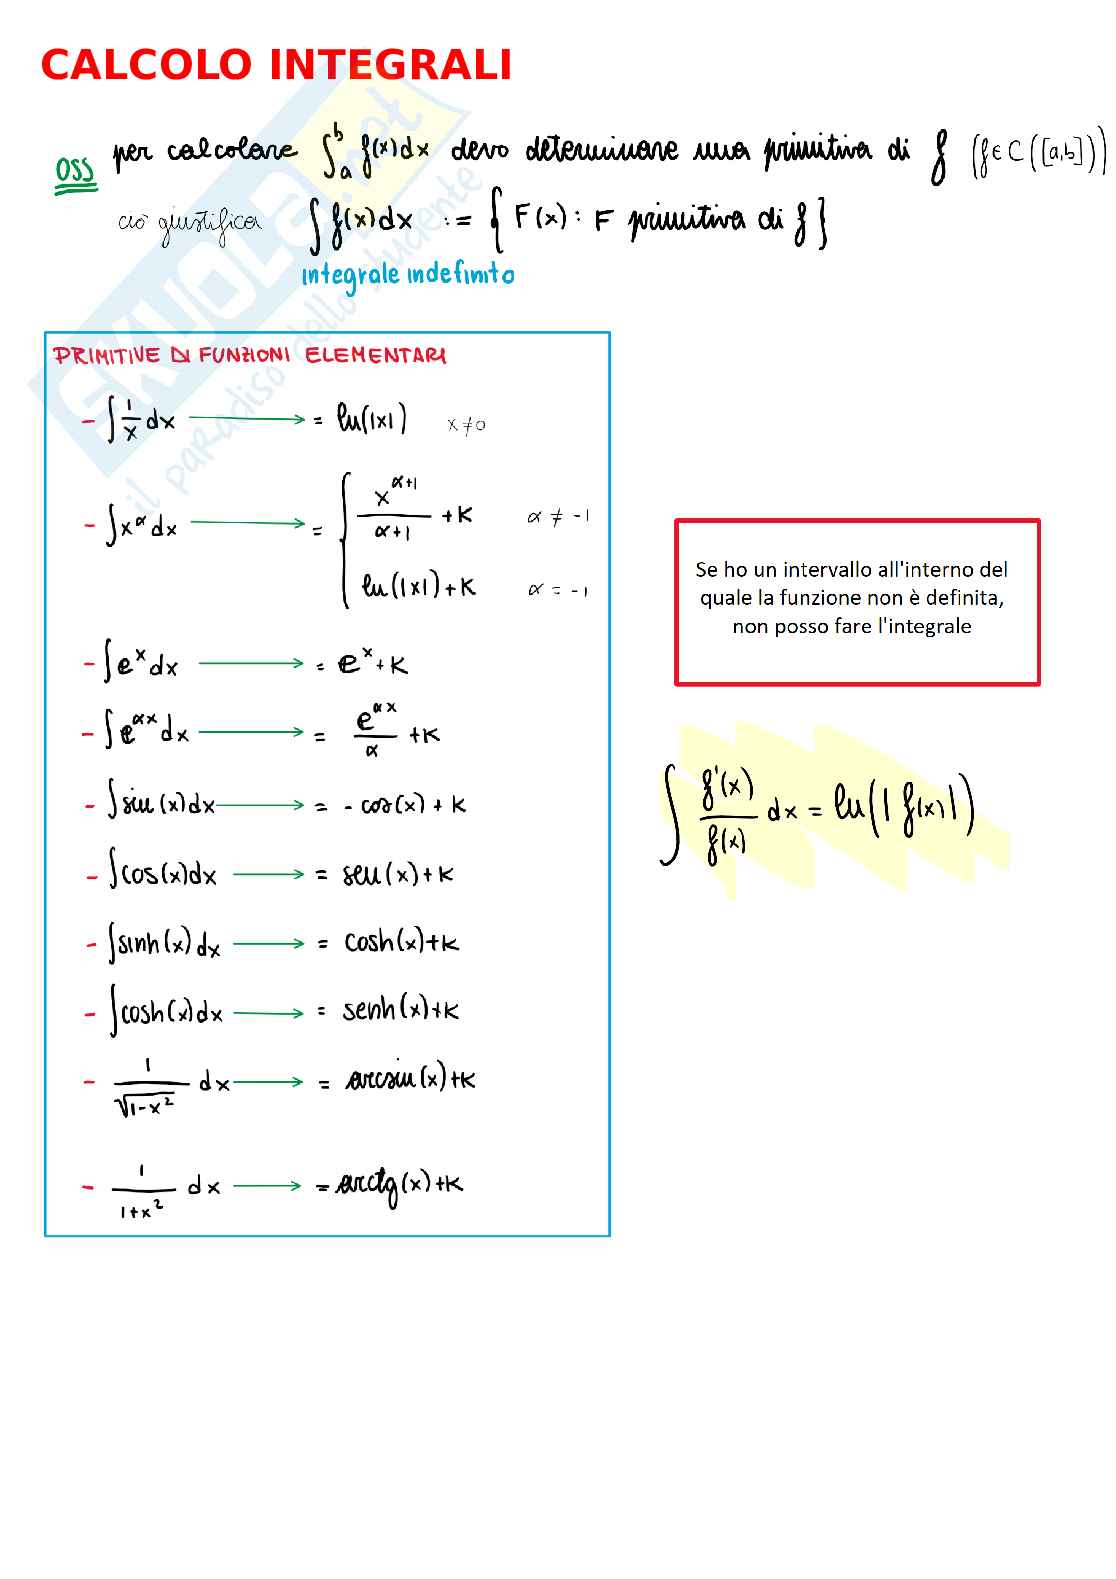 CALCOLO INTEGRALI
OSS per calcolare ∫_a^b f(x)dx devo determinare una primitiva di f (f ∈ C([a,b]))
ciò giustifica ∫f(x)dx := { F(x) : F primitiva di f }
integrale indefinito
PRIMITIVE DI FUNZIONI ELEMENTARI
- ∫ 1/x dx → = ln(|x|) x ≠ 0
- ∫ x^α dx → = { x^(α+1)/(α+1) + K α ≠ -1
ln(|x|) + K α = -1
- ∫ e^x dx → = e^x + K
- ∫ e^(αx) dx → = e^(αx)/α + K
- ∫ sin(x)dx → = - cos(x) + K
- ∫ cos(x)dx → = sen(x) + K
- ∫ sinh(x)dx → = cosh(x) + K
- ∫ cosh(x)dx → = senh(x) + K
- 1/√(1-x²) dx → = arcsin(x) + K
- 1/(1+x²) dx → = arctg(x) + K
Se ho un intervallo all'interno del
quale la funzione non è definita,
non posso fare l'integrale
∫ f'(x)/f(x) dx = ln(|f(x)|)
SKUOLA.net
il paradiso dello studente